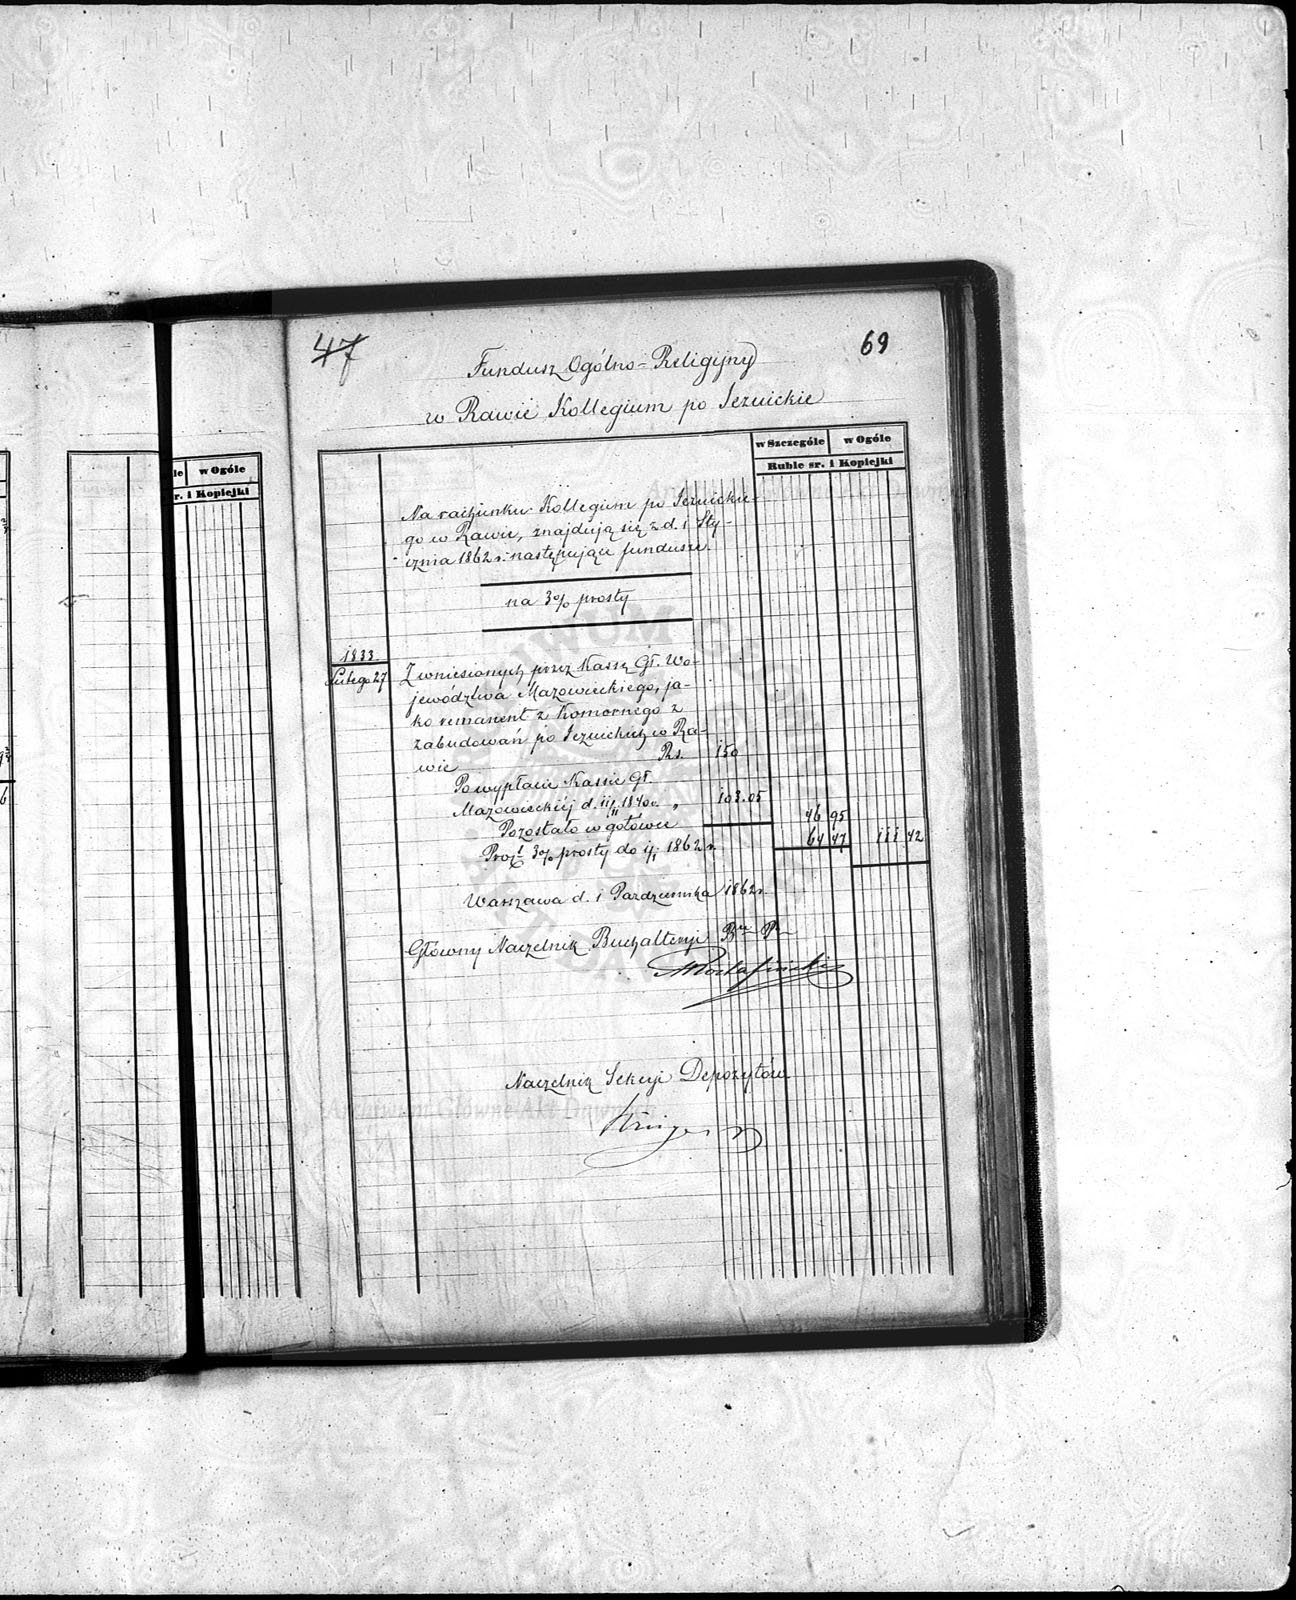 47
69
Fundusz Ogólno-Religijny
w Rawie Kollegium po Jezuickie
w Szczególe w Ogóle
Ruble sr. i Kopiejki
w Ogóle
r. i Kopiejki
Na rachunku Kollegium po Jezuickie-
go w Rawie, znajdują się z d. 1 Sty-
cznia 1862 r. następujące fundusze.
na 3% prosty
1833
Lutego 27
Z wniesionych przez Kassę Gł. Wo-
jewództwa Mazowieckiego, ja-
ko remanent z Komornego z
zabudowań po Jezuickich w Ra-
wie Rs. 150
Po wypłacie Kassie Gł.
Mazowieckiej d. 11/11 1840 r. „ 103.05
Pozostało w gotówce 46 95
Proct 3% prosty do 1/1 1862 r. 64 47 111 42
Warszawa d. 1 Pazdziernika 1862 r.
Główny Naczelnik Buchalteryi
Naczelnik Sekcyi Depozytów
Archiwum Główne Akt Dawnych